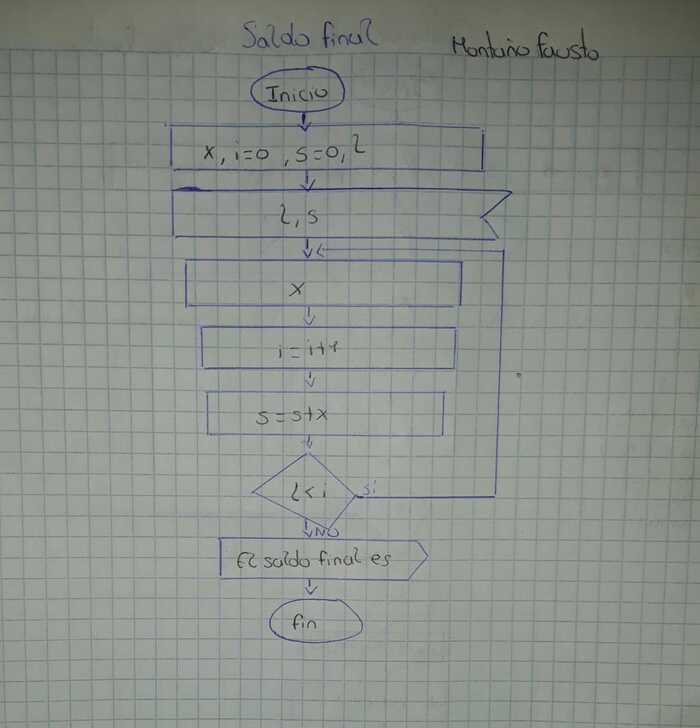 Saldo final
Montaño Fausto
Inicio
x, i=0, s=0, l
l, s
x
i=i+1
s=s+x
l<i
si
NO
El saldo final es
fin